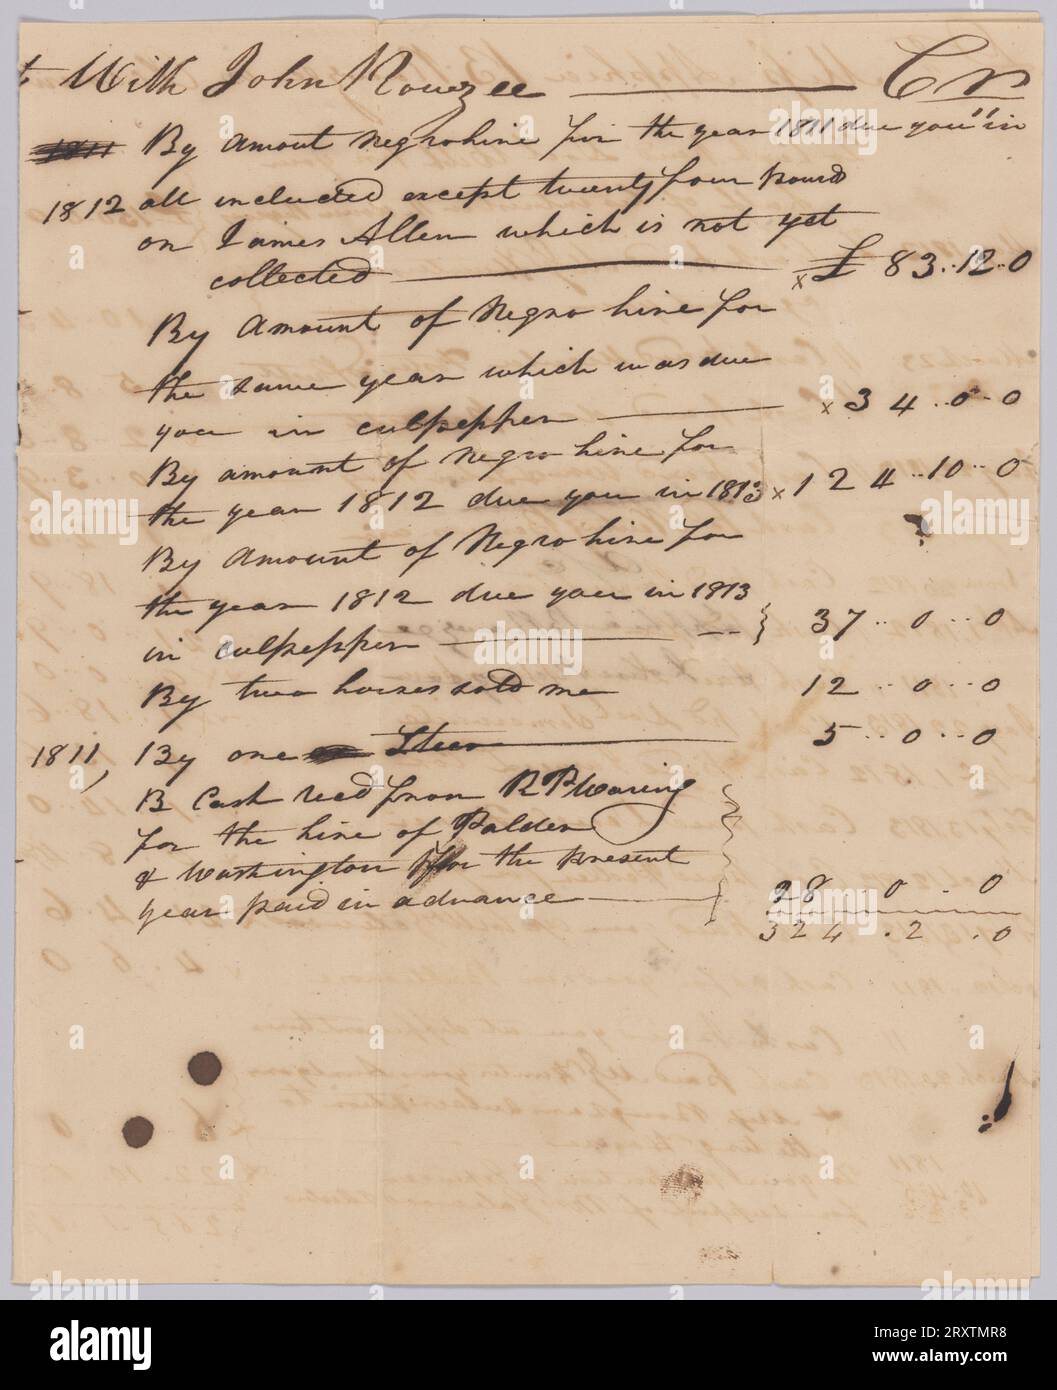 t With John Rouzee Cr
1811 By Amout Negro hire for the year 1811 due you in
1812 all included except twenty four pound
on James Allen which is not yet
collected x £ 83..12..0
By Amount of Negro hire for
the same year which was due
you in culpepper x 34..0..0
By amount of Negro hire for
the year 1812 due you in 1813 x 124..10..0
By Amount of Negro hire for
the year 1812 due you in 1813
in culpepper 37..0..0
By two horses sold me 12..0..0
1811, By one Steer 5..0..0
B Cash recd from R P Waring
for the hire of Palden
& Washington for the present
year paid in advance 28.0.0
324.2.0
alamy
Image ID: 2RXTMR8
www.alamy.com